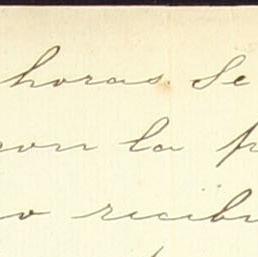 horas. Se
ron la p
o recibi